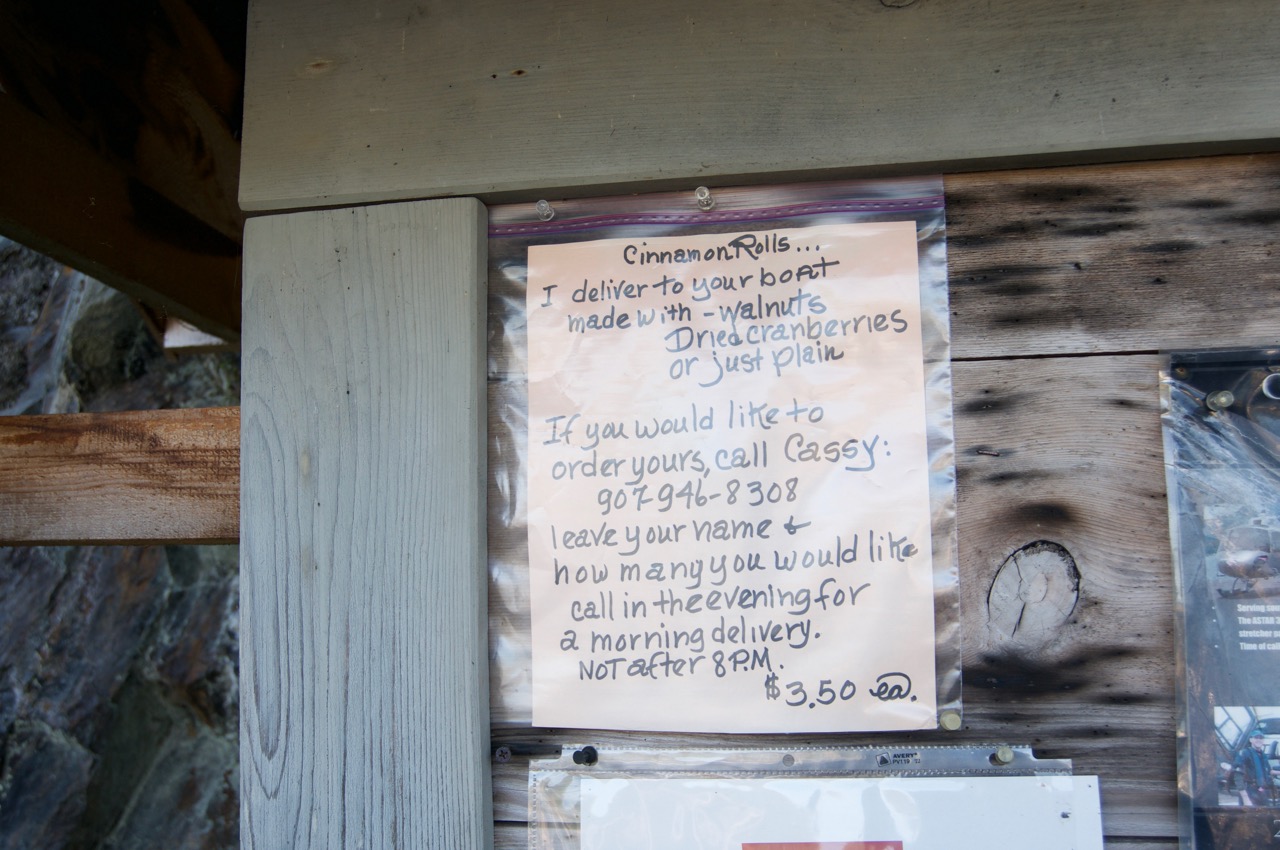 Cinnamon Rolls...
I deliver to your boat
made with - walnuts
Dried cranberries
or just plain
If you would like to
order yours, call Cassy:
907-946-8308
leave your name &
how many you would like
call in the evening for
a morning delivery.
NOT after 8 P.M.
$3.50 ea.
AVERY
PV119
Serving
The ASTAR
stretcher
Time of